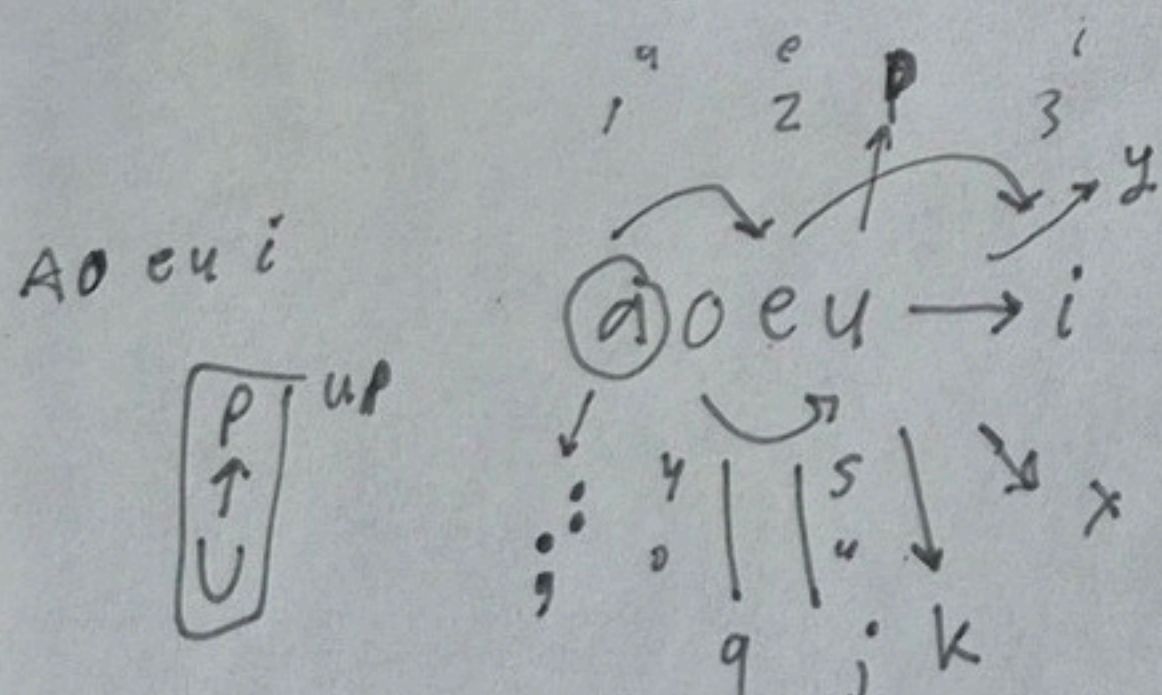 a e i
1 2 p 3
y
A o e u i
a o e u → i
p up
↑
U
: 4 5
; o u x
q j k